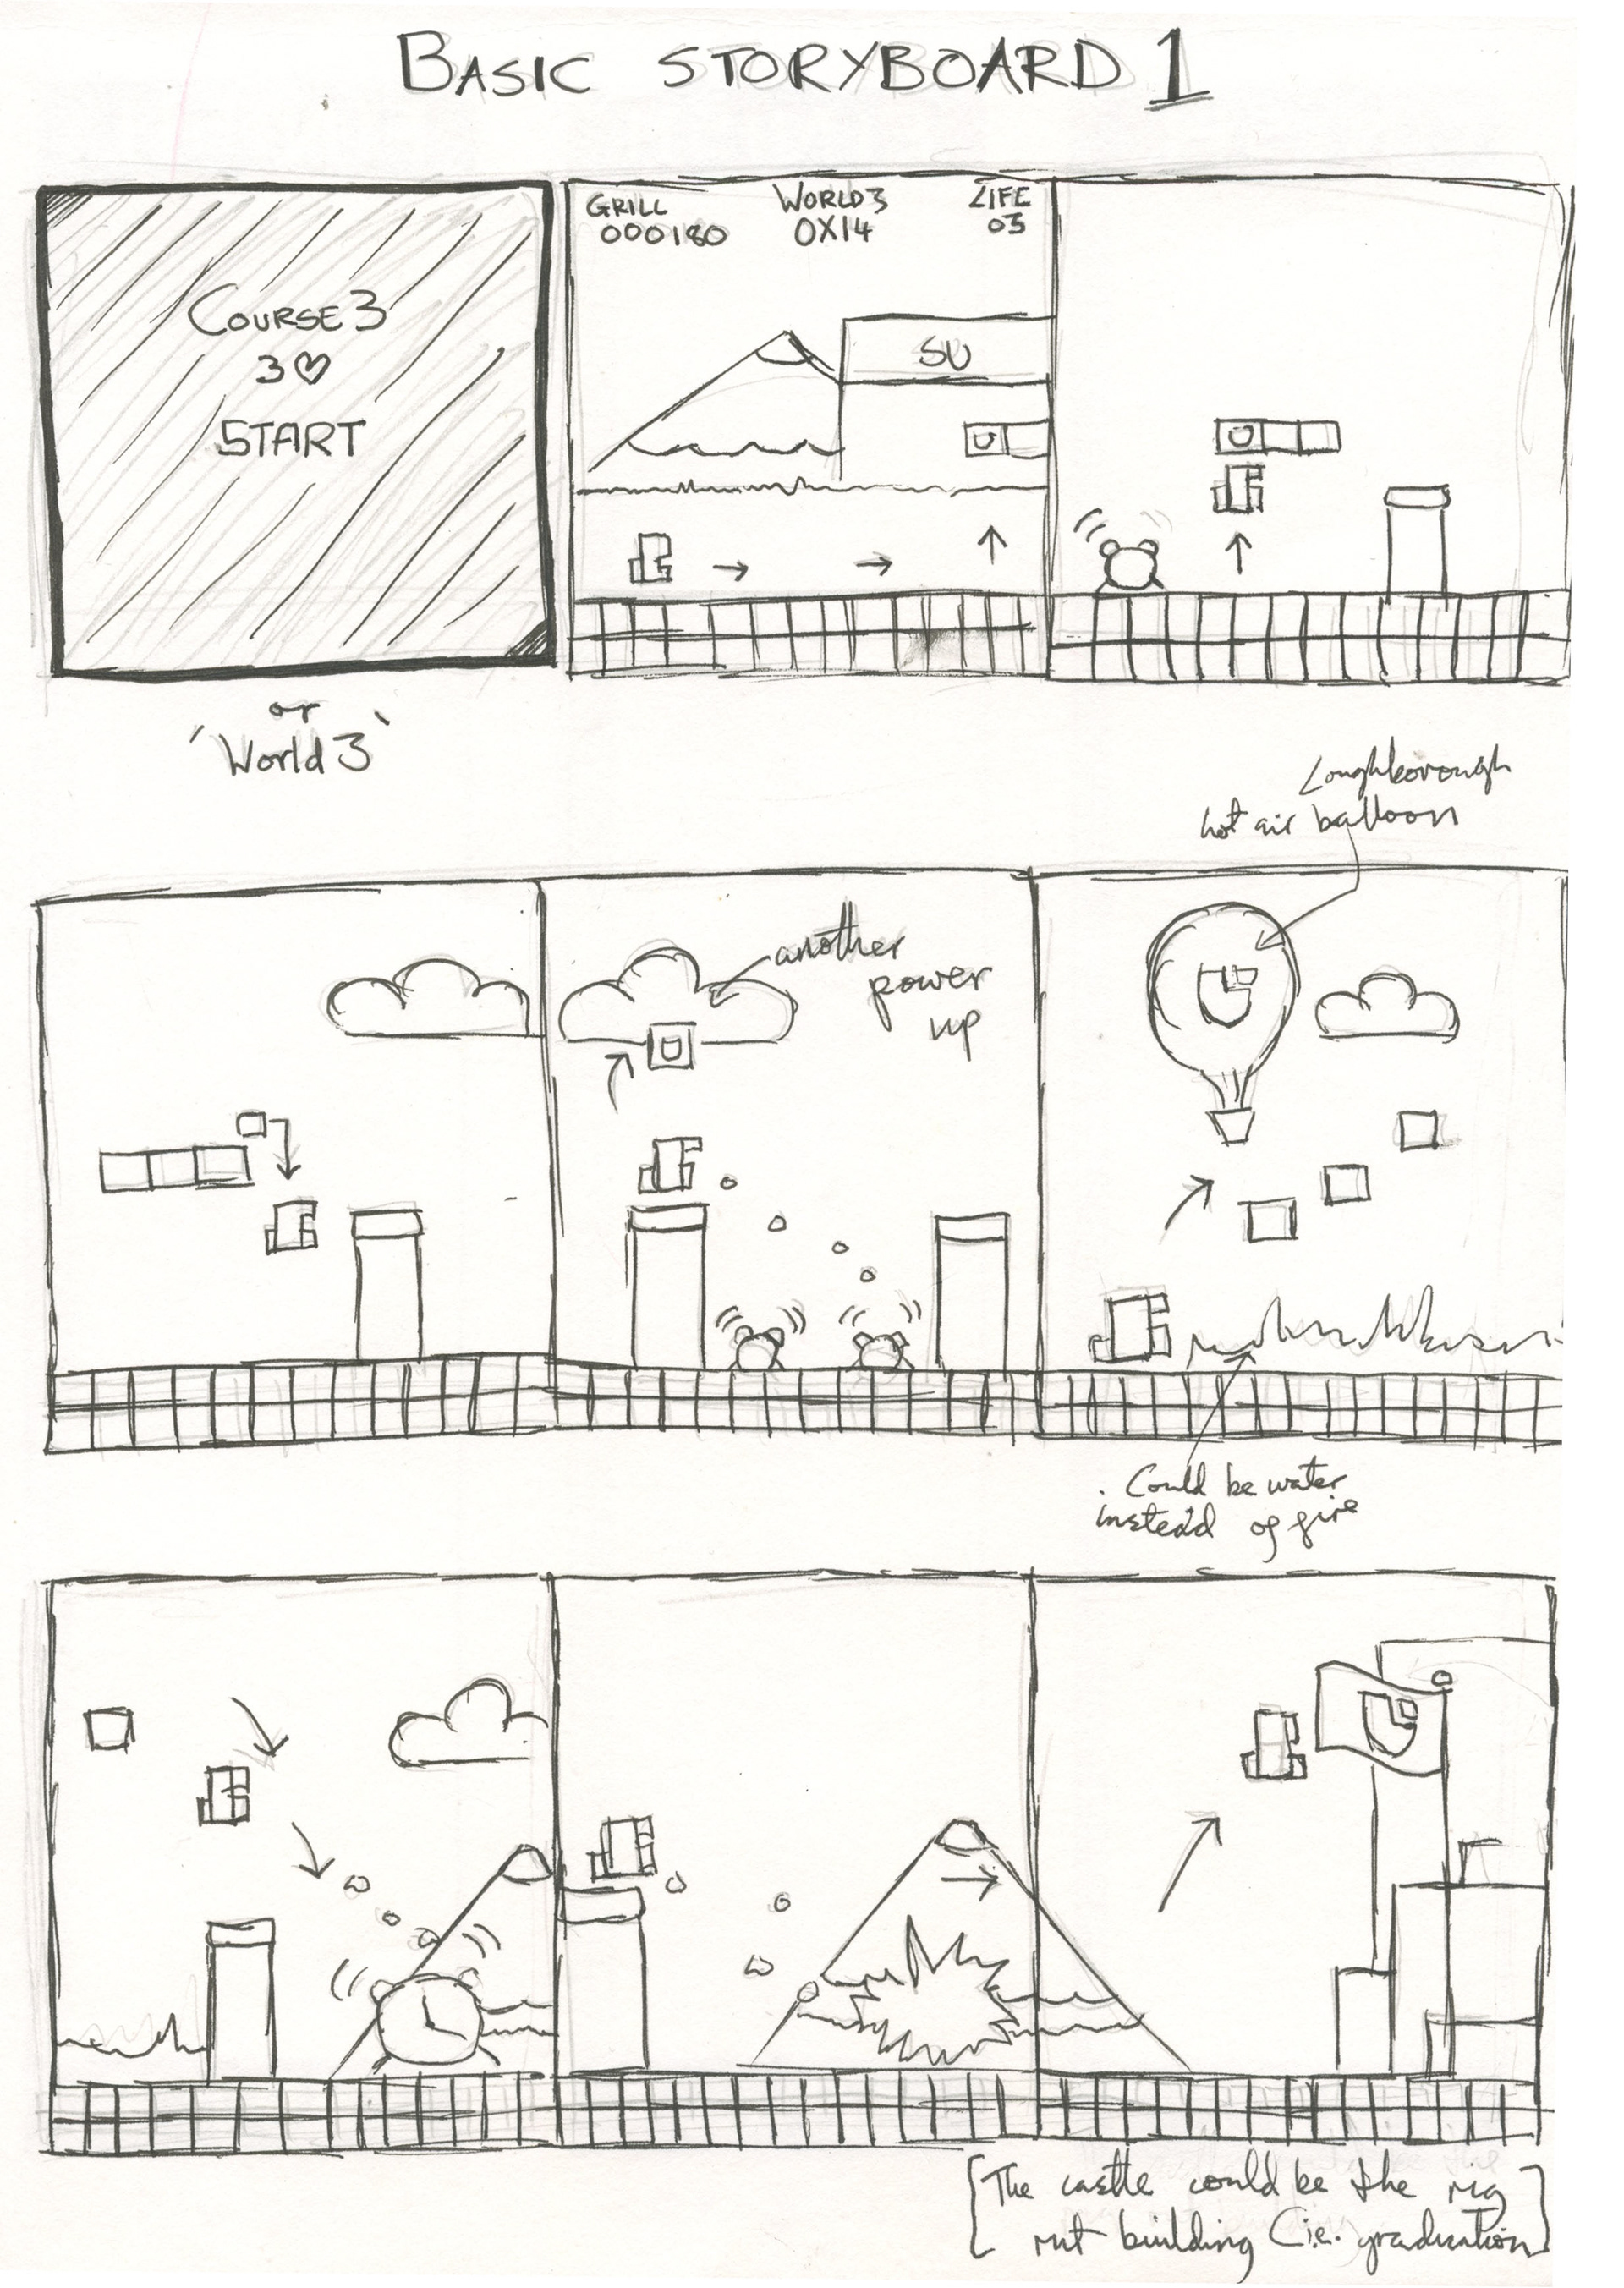 BASIC STORYBOARD 1
COURSE 3
3♡
START
or
'World 3'
GRILL
000180
WORLD 3
0X14
LIFE
03
SU
Loughborough
hot air balloon
another
power
up
. Could be water
instead of fire
[The castle could be the
building (i.e. graduation]